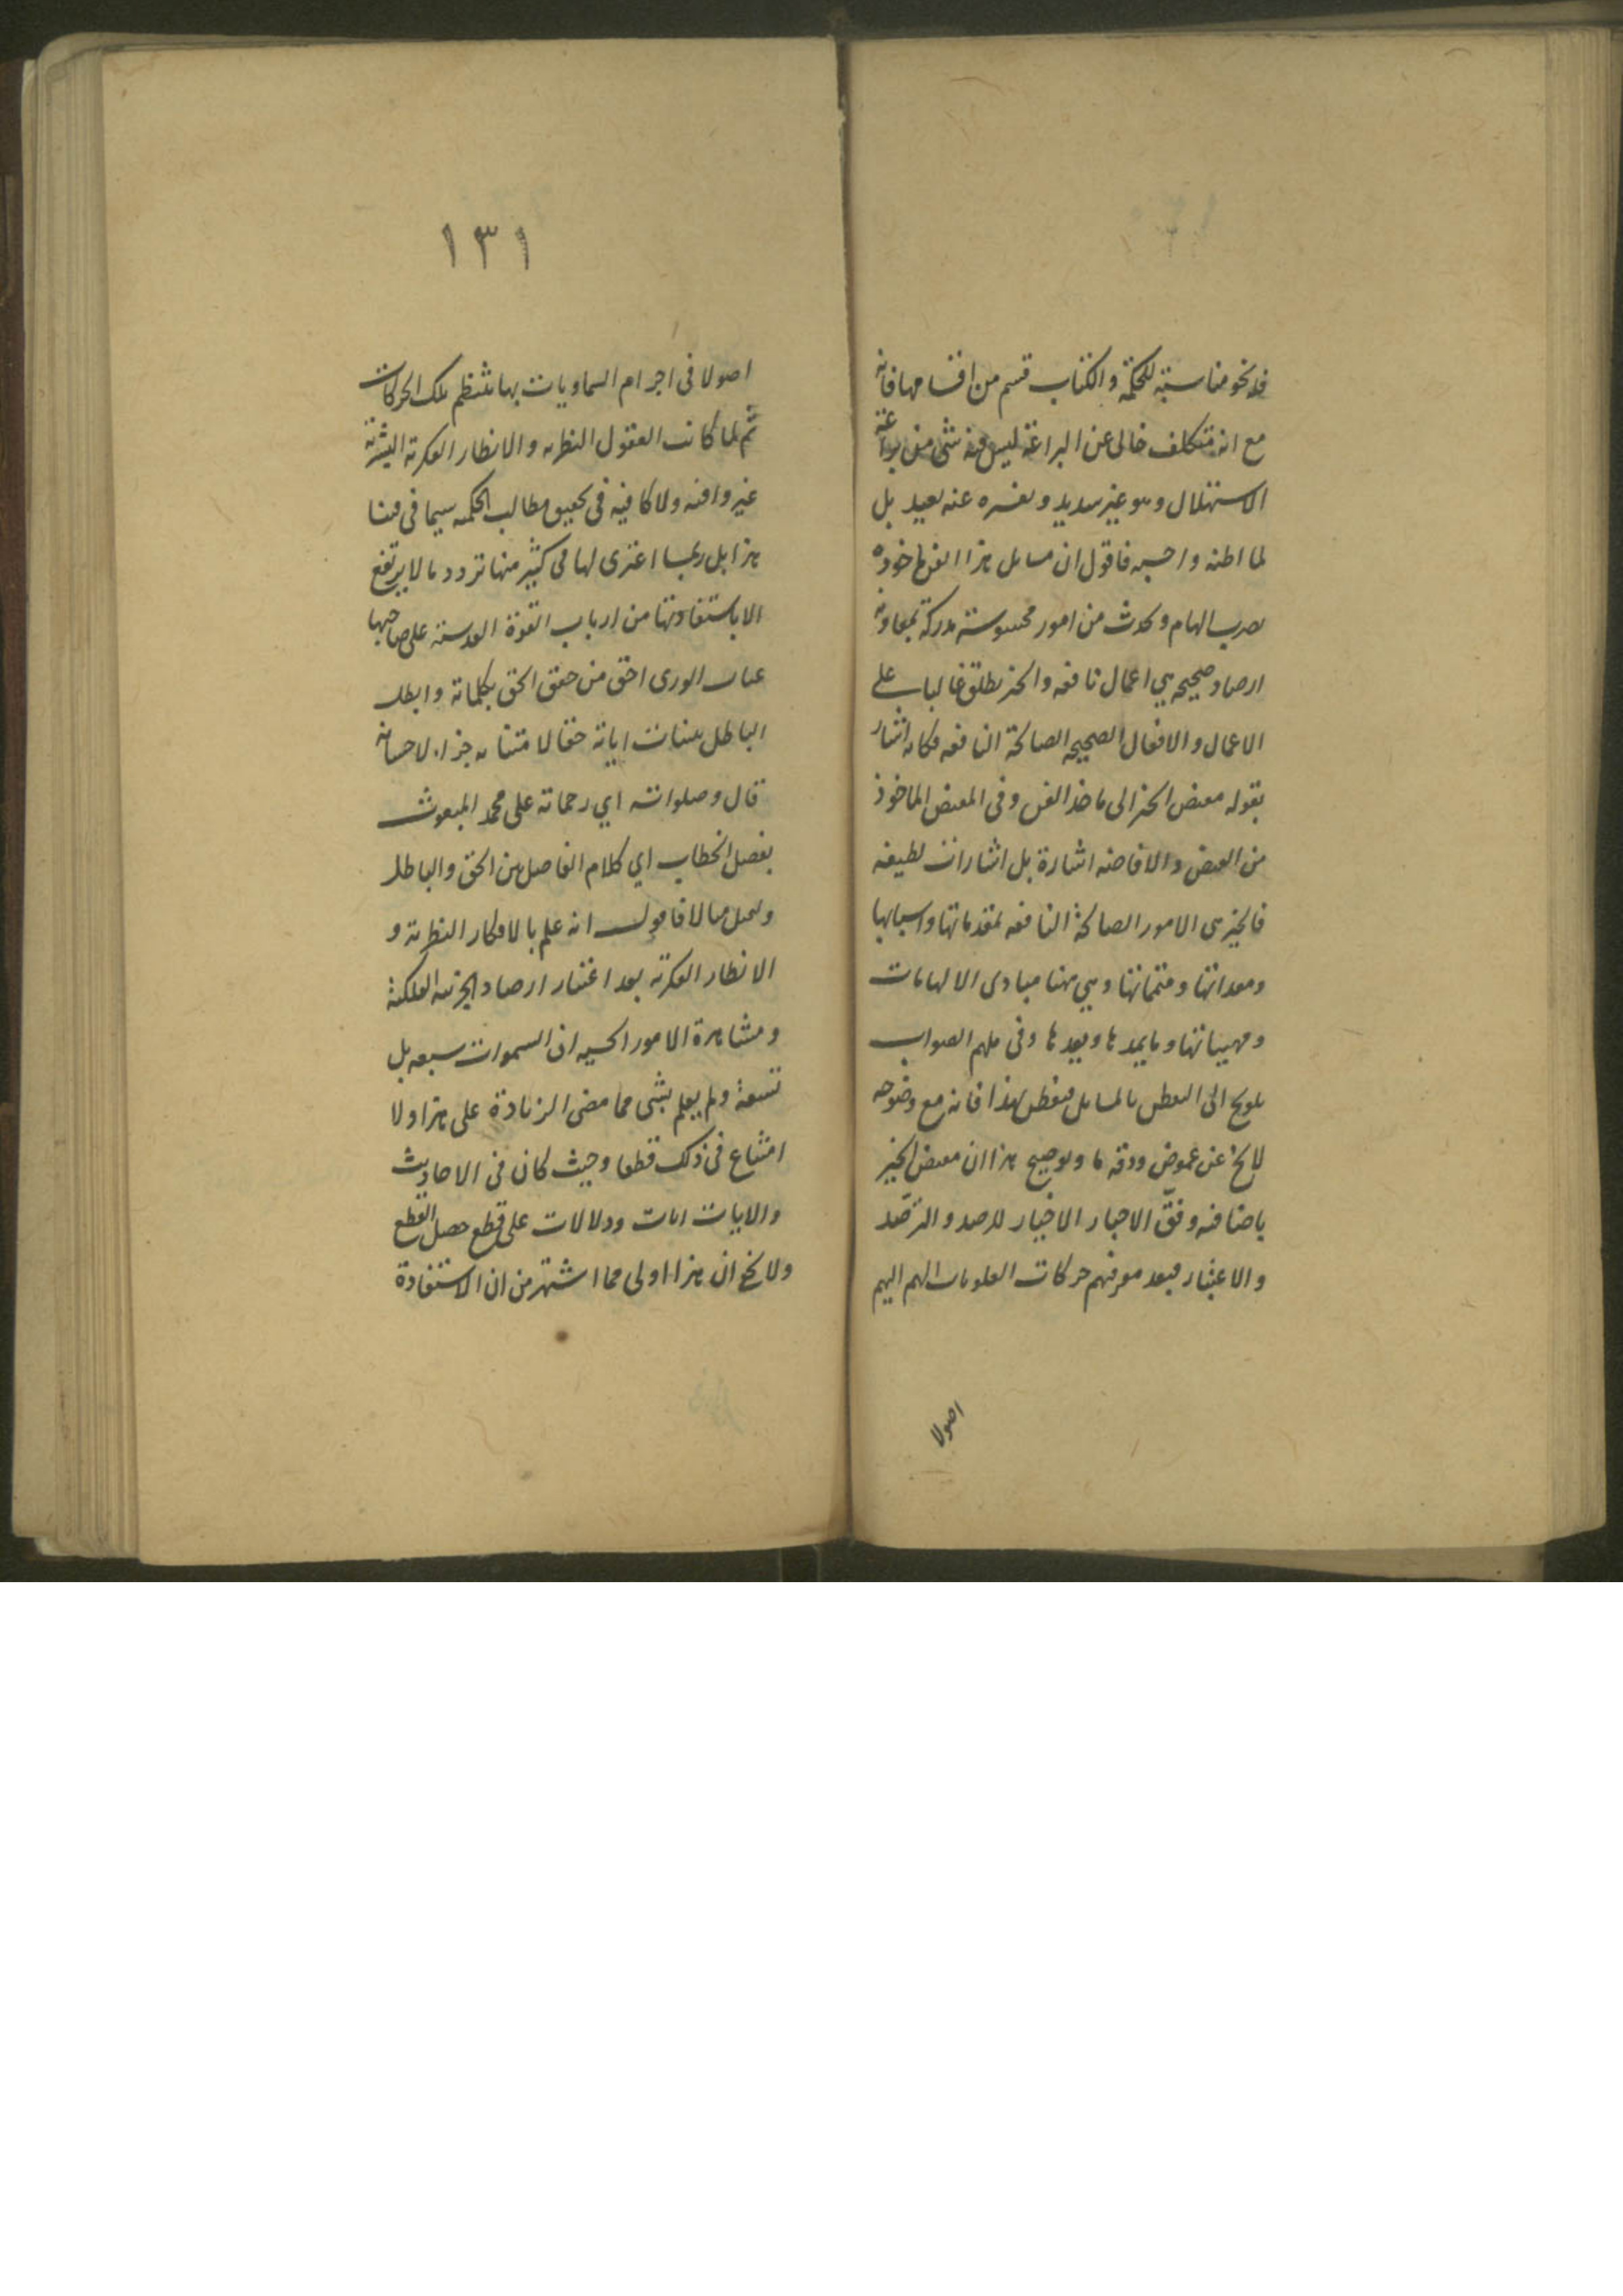 فله نحو مناسبة للحكمة والكتاب قسم من اقسامها فانه
مع انه متكلف خالى عن البراعة ليس فيه شئ من براعة
الاستهلال وهو غير سديد وتفسيره عنه بعيد بل
لما اظنه واحسبه فاقول ان مسايل هذا الفن ماخوذة
بضرب الهام وحدث من امور محسوسة مدركة بمعاونة
ارصاد صحيحه هي اعمال نافعه والخير يطلق غالبا على
الاعمال والافعال الصحيحه الصالحة النافعه فكانه اشار
بقوله مفيض الخير الى ماخذ الفن وفى المفيض الماخوذ
من الفيض والافاضه اشارة بل اشارات لطيفه
فالخير هى الامور الصالحة النافعه بمقدماتها واسبابها
ومعداتها ومتمماتها وهي ههنا مبادى الالهامات
ومهيياتها وما يمدها ويعدها وفى ملهم الصواب
تلويح الى التفطن بالمسايل فتفطن لهذا فانه مع وضوحه
لا يخ عن غموض ودقه ما وتوضيح هذا ان مفيض الخير
باضافته وفق الاحبار الاخيار للرصد والترصد
والاعتبار فبعد معرفتهم حركات العلويات الهم اليهم
اصولا
١٣١
اصولا فى اجرام السماويات بها تنتظم تلك الحركات
ثم لما كانت العقول النظريه والانظار الفكرية البشرية
غير وافيه ولا كافيه فى تحقيق مطالب الحكمه سيما فى فننا
هذا بل ربما اعترى لها فى كثير منها تردد ما لا يرتفع
الا باستفادتها من ارباب القوة القدسية على صاحبها
الورى احق من حقق الحق بكلماته وابطل
الباطل ببينات اياته حقا لا متناه جزاء لاحسانه
قال وصلواته اي رحماته على محمد المبعوث
بفصل الخطاب اي كلام الفاصل بين الحق والباطل
انه علم بالافكار النظرية و
الانظار الفكرية بعد اعتبار ارصاد الجزئيه الفلكية
ومشاهدة الامور الحسيه ان السموات سبعه بل
تسعة ولم يعلم بشى مما مضى الزيادة على هذا ولا
امتناع فى ذلك قطعا وحيث كان فى الاحاديث
والايات ايات ودلالات على قطع حصل القطع
ولا يخ ان هذا اولى مما اشتهر من ان الاستفادة